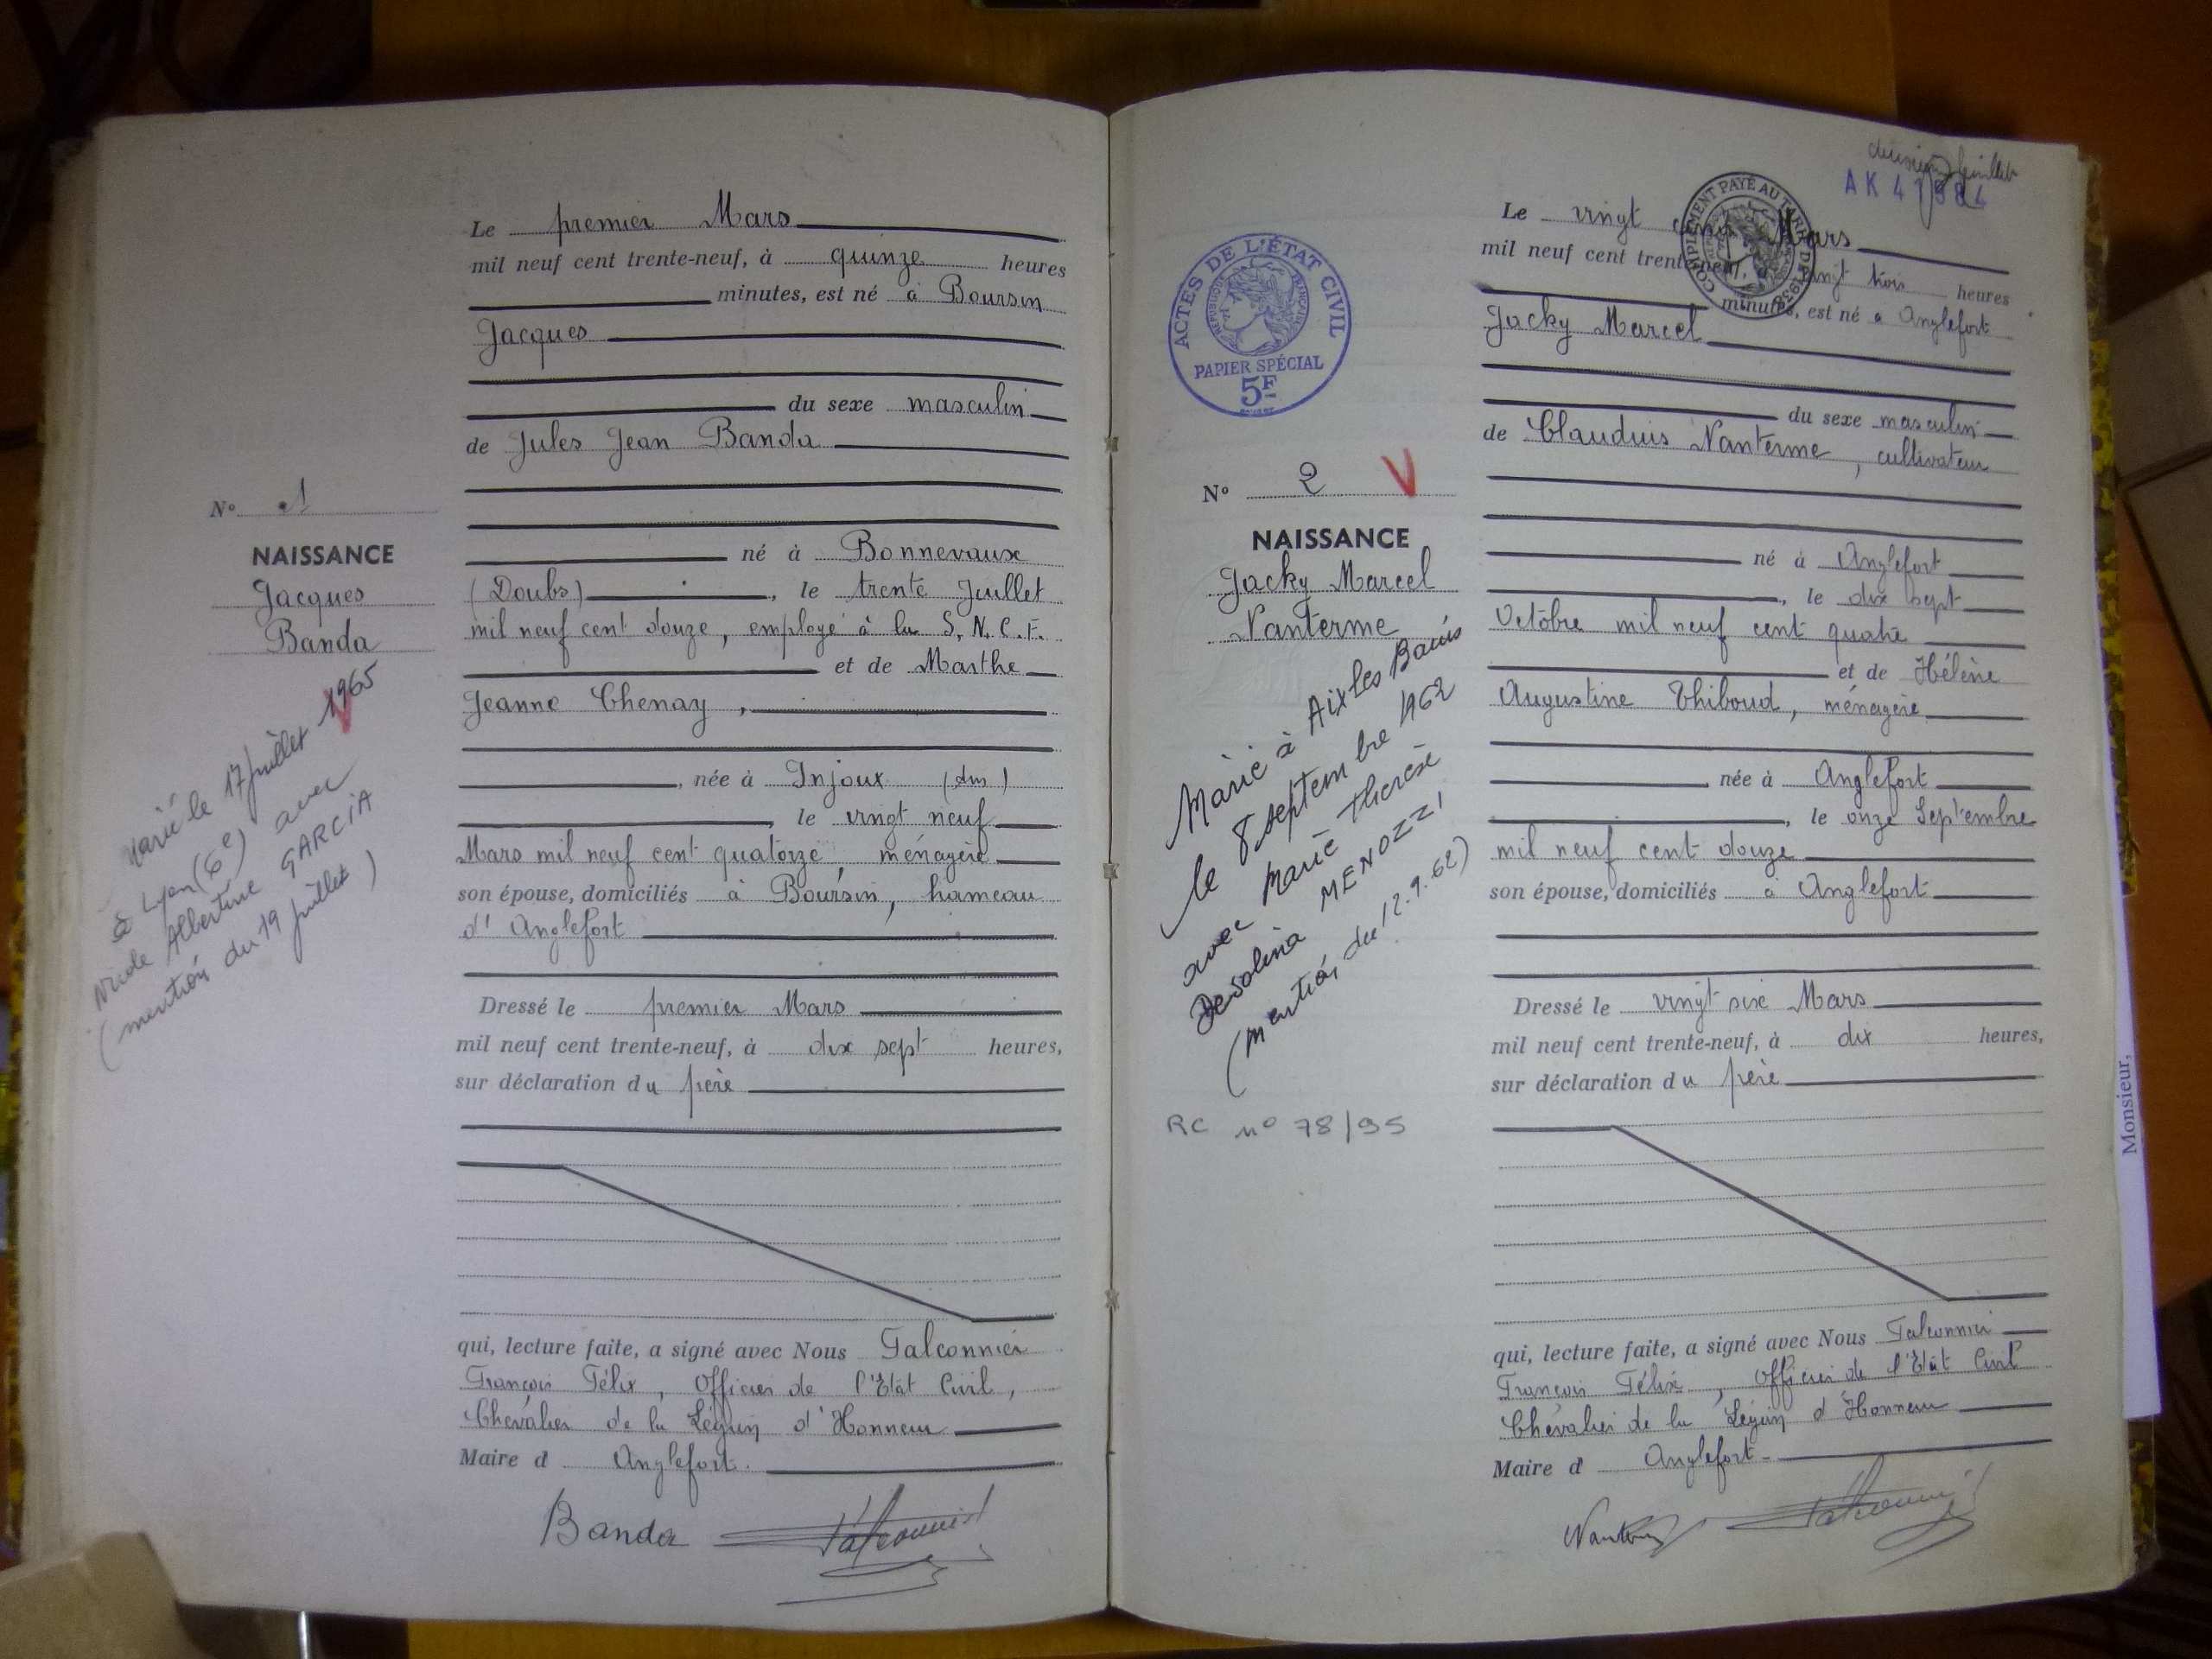 Le premier Mars
mil neuf cent trente-neuf, à quinze heures
minutes, est né à Boursin
Jacques
du sexe masculin
de Jules Jean Banda
né à Bonnevaux
(Doubs), le trente Juillet
mil neuf cent douze, employé à la S.N.C.F.
et de Marthe
Jeanne Chenay,
, née à Injoux (Ain)
, le vingt neuf
Mars mil neuf cent quatorze, ménagère
son épouse, domiciliés à Boursin, hameau
d'Anglefort
Dressé le premier Mars
mil neuf cent trente-neuf, à dix sept heures,
sur déclaration du père
qui, lecture faite, a signé avec Nous Falconnier
François Félix, Officier de l'Etat Civil,
Chevalier de la Légion d'Honneur
Maire d Anglefort.
Banda Falconnier
N° 1
NAISSANCE
Jacques
Banda
Marié le 17 juillet 1965
à Lyon (6e) avec
Nicole Albertine GARCIA
(mention du 19 juillet)
feuillet
AK 41584
COMPLEMENT PAYÉ AU TARIF DE 1938
ACTES DE L'ÉTAT CIVIL
RÉPUBLIQUE FRANÇAISE
PAPIER SPÉCIAL
5F
N° 2 V
NAISSANCE
Jacky Marcel
Nanterme
Marié à Aix les Bains
le 8 septembre 1962
avec Marie Therese
MENOZZI
(mention du 12.9.62)
RC n° 78/95
Le vingt cinq Mars
mil neuf cent trente-neuf, à vingt trois heures
minutes, est né à Anglefort
Jacky Marcel
du sexe masculin
de Claudius Nanterme, cultivateur
né à Anglefort
, le dix sept
Octobre mil neuf cent quatre
et de Hélène
Augustine Thiboud, ménagère
née à Anglefort
, le onze Septembre
mil neuf cent douze
son épouse, domiciliés à Anglefort
Dressé le vingt six Mars
mil neuf cent trente-neuf, à dix heures,
sur déclaration du père
qui, lecture faite, a signé avec Nous Falconnier
François Félix, Officier de l'Etat Civil
Chevalier de la Légion d'Honneur
Maire d' Anglefort
Nanterme Falconnier
Monsieur,